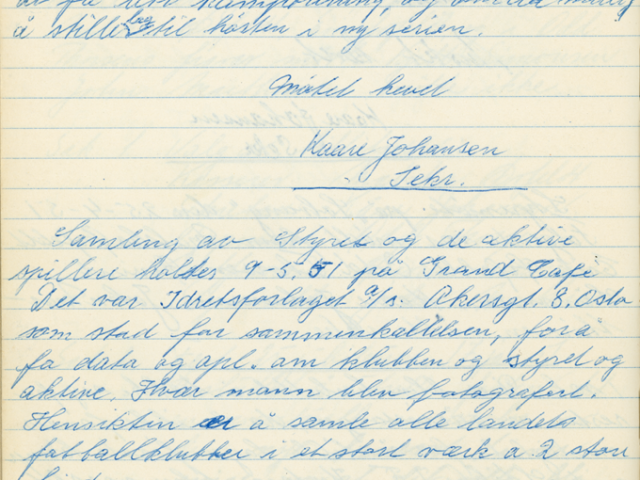 å stille lag til høsten i ny serien.
Møtet hevet
Kaare Johansen
Sekr.
Samling av Styret og de aktive
spillere holdtes 9-5.51 på Grand Café
Det var Idretsforlaget a/s. Akersgt. 8. Oslo
som stod for sammenkaltelsen, for å
få data og opl. om klubben og styret og
aktive. Hvar mann blev fotografert.
Hensikten er å samle alle landets
fotballklubber i et stort værk a 2 store